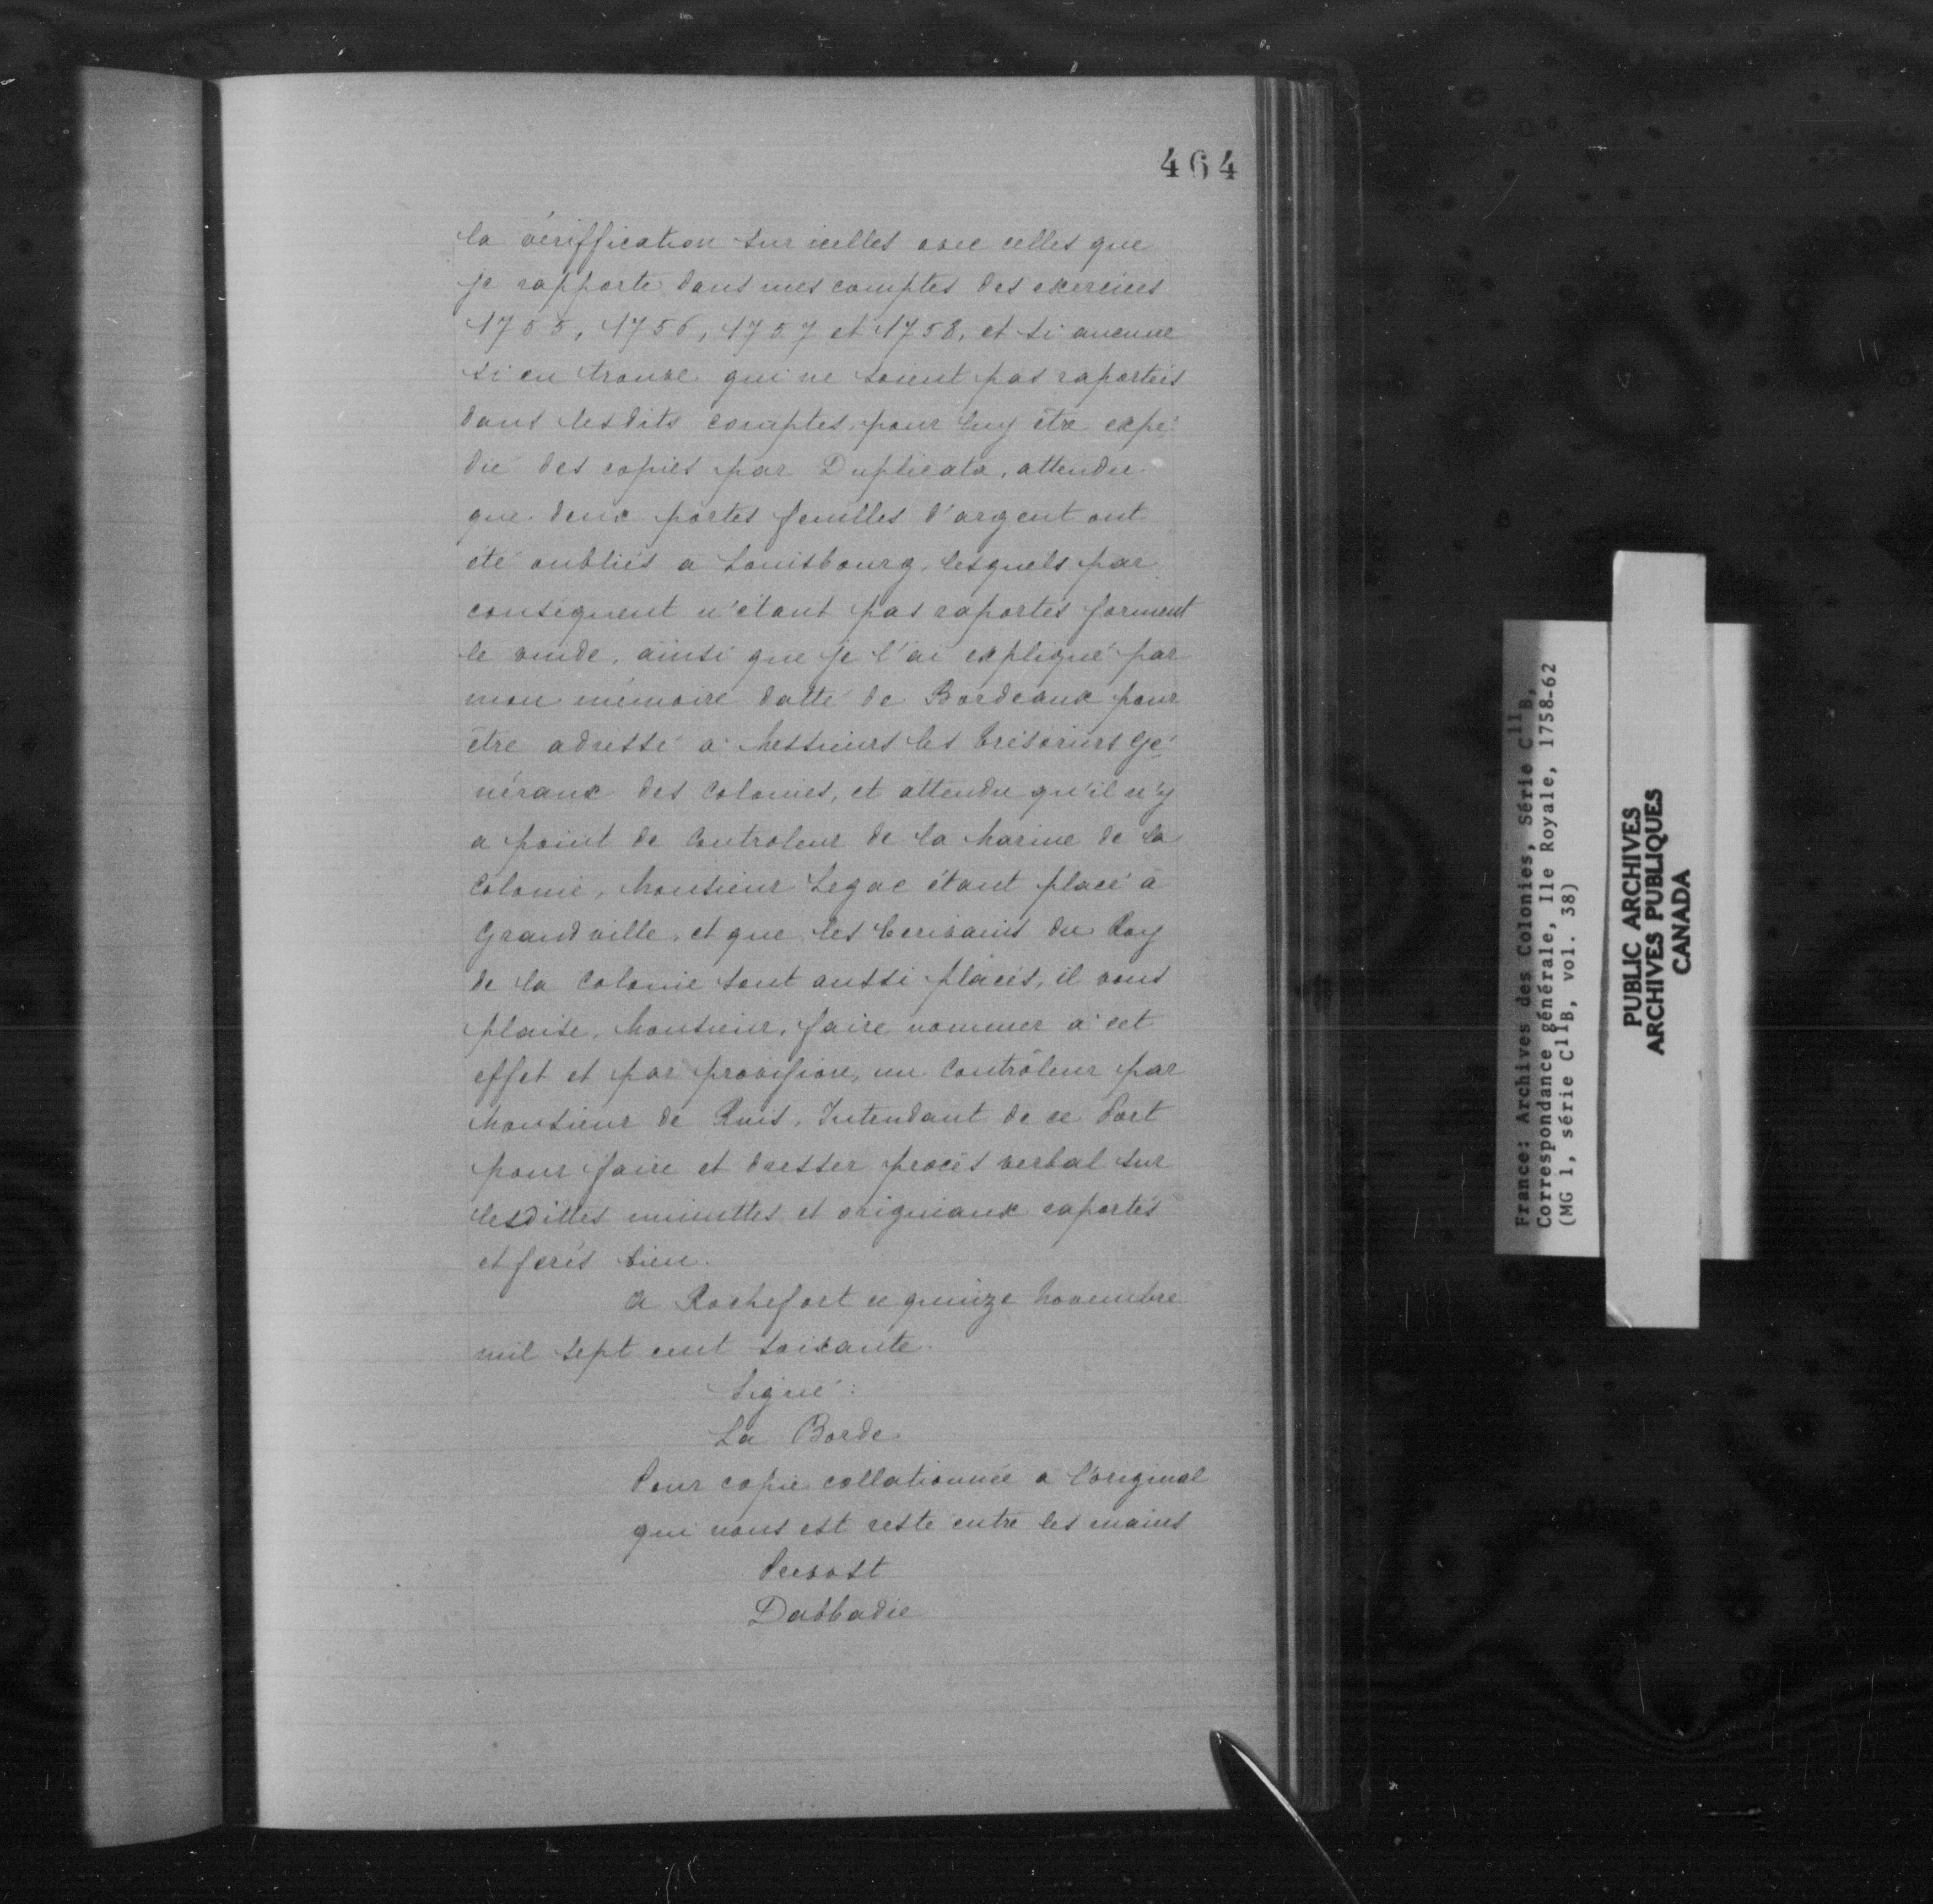 464
la vériffication sur icelles avec celles que
je rapporte dans mes comptes des exercices
1755, 1756, 1757 et 1758, et si aucune
si en trouve qui ne soient pas raportées
dans lesdits comptes, pour luy être expé-
dié des copies par Duplicata, attendu
que deux portes feuilles d'argent ont
été oubliés a Louisbourg, lesquels par
conséquent n'étant pas raportés forment
le vuide, ainsi que je l'ai expliqué par
mon mémoire datté de Bordeaux pour
être adressé a Messieurs les trésoriers Gé-
néraux des Colonies, et attendu qu'il n'y
a point de Controleur de la Marine de la
Colonie, Monsieur Legac étant placé à
Grandville, et que les Ecrivains du Roy
de la Colonie sont aussi placés, il vous
plaise, Monsieur, faire nommer a cet
effet et par provision, un Contrôleur par
Monsieur de Ruis, Intendant de ce Port
pour faire et dresser procès verbal sur
lesdittes minuttes et originaux raportés
et ferés bien.
A Rochefort ce quinze Novembre
mil sept cent soixante.
Signé :
La Borde
Pour copie collationnée a l'original
qui nous est resté entre les mains
Prevost
Dabbadie
France: Archives des Colonies, Série C11B,
Correspondance générale, Ile Royale, 1758-62
(MG 1, série C11B, vol. 38)
PUBLIC ARCHIVES
ARCHIVES PUBLIQUES
CANADA